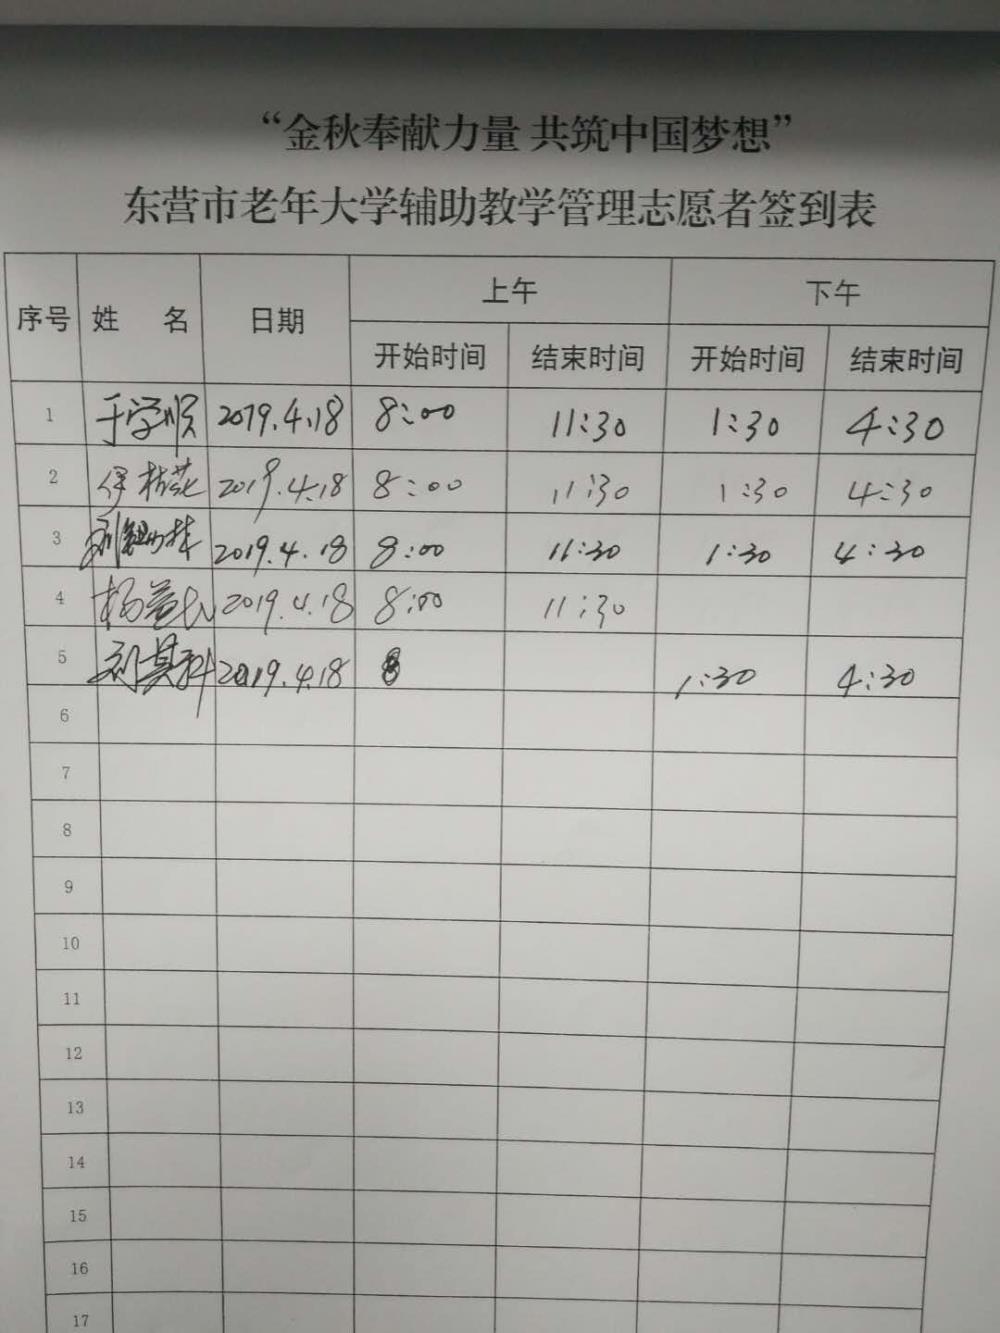 “金秋奉献力量 共筑中国梦想”
东营市老年大学辅助教学管理志愿者签到表
序号 姓 名 日期 上午 下午
开始时间 结束时间 开始时间 结束时间
1 于学顺 2019.4.18 8:00 11:30 1:30 4:30
2 伊桂花 2019.4.18 8:00 11:30 1:30 4:30
3 2019.4.18 8:00 11:30 1:30 4:30
4 杨益民 2019.4.18 8:00 11:30
5 刘其科 2019.4.18 1:30 4:30
6
7
8
9
10
11
12
13
14
15
16
17